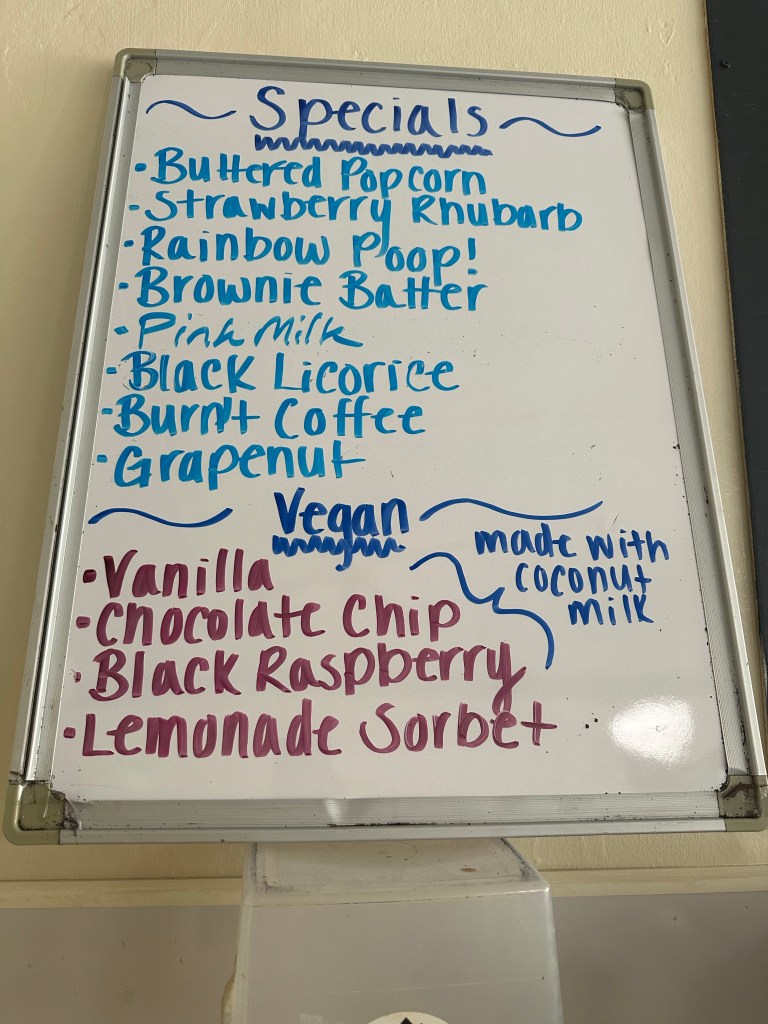 ~ Specials ~
• Buttered Popcorn
- Strawberry Rhubarb
• Rainbow Poop!
• Brownie Batter
• Pink Milk
• Black Licorice
• Burn't Coffee
• Grapenut
~ Vegan ~
made with
coconut
milk
• Vanilla
• Chocolate Chip
• Black Raspberry
• Lemonade Sorbet